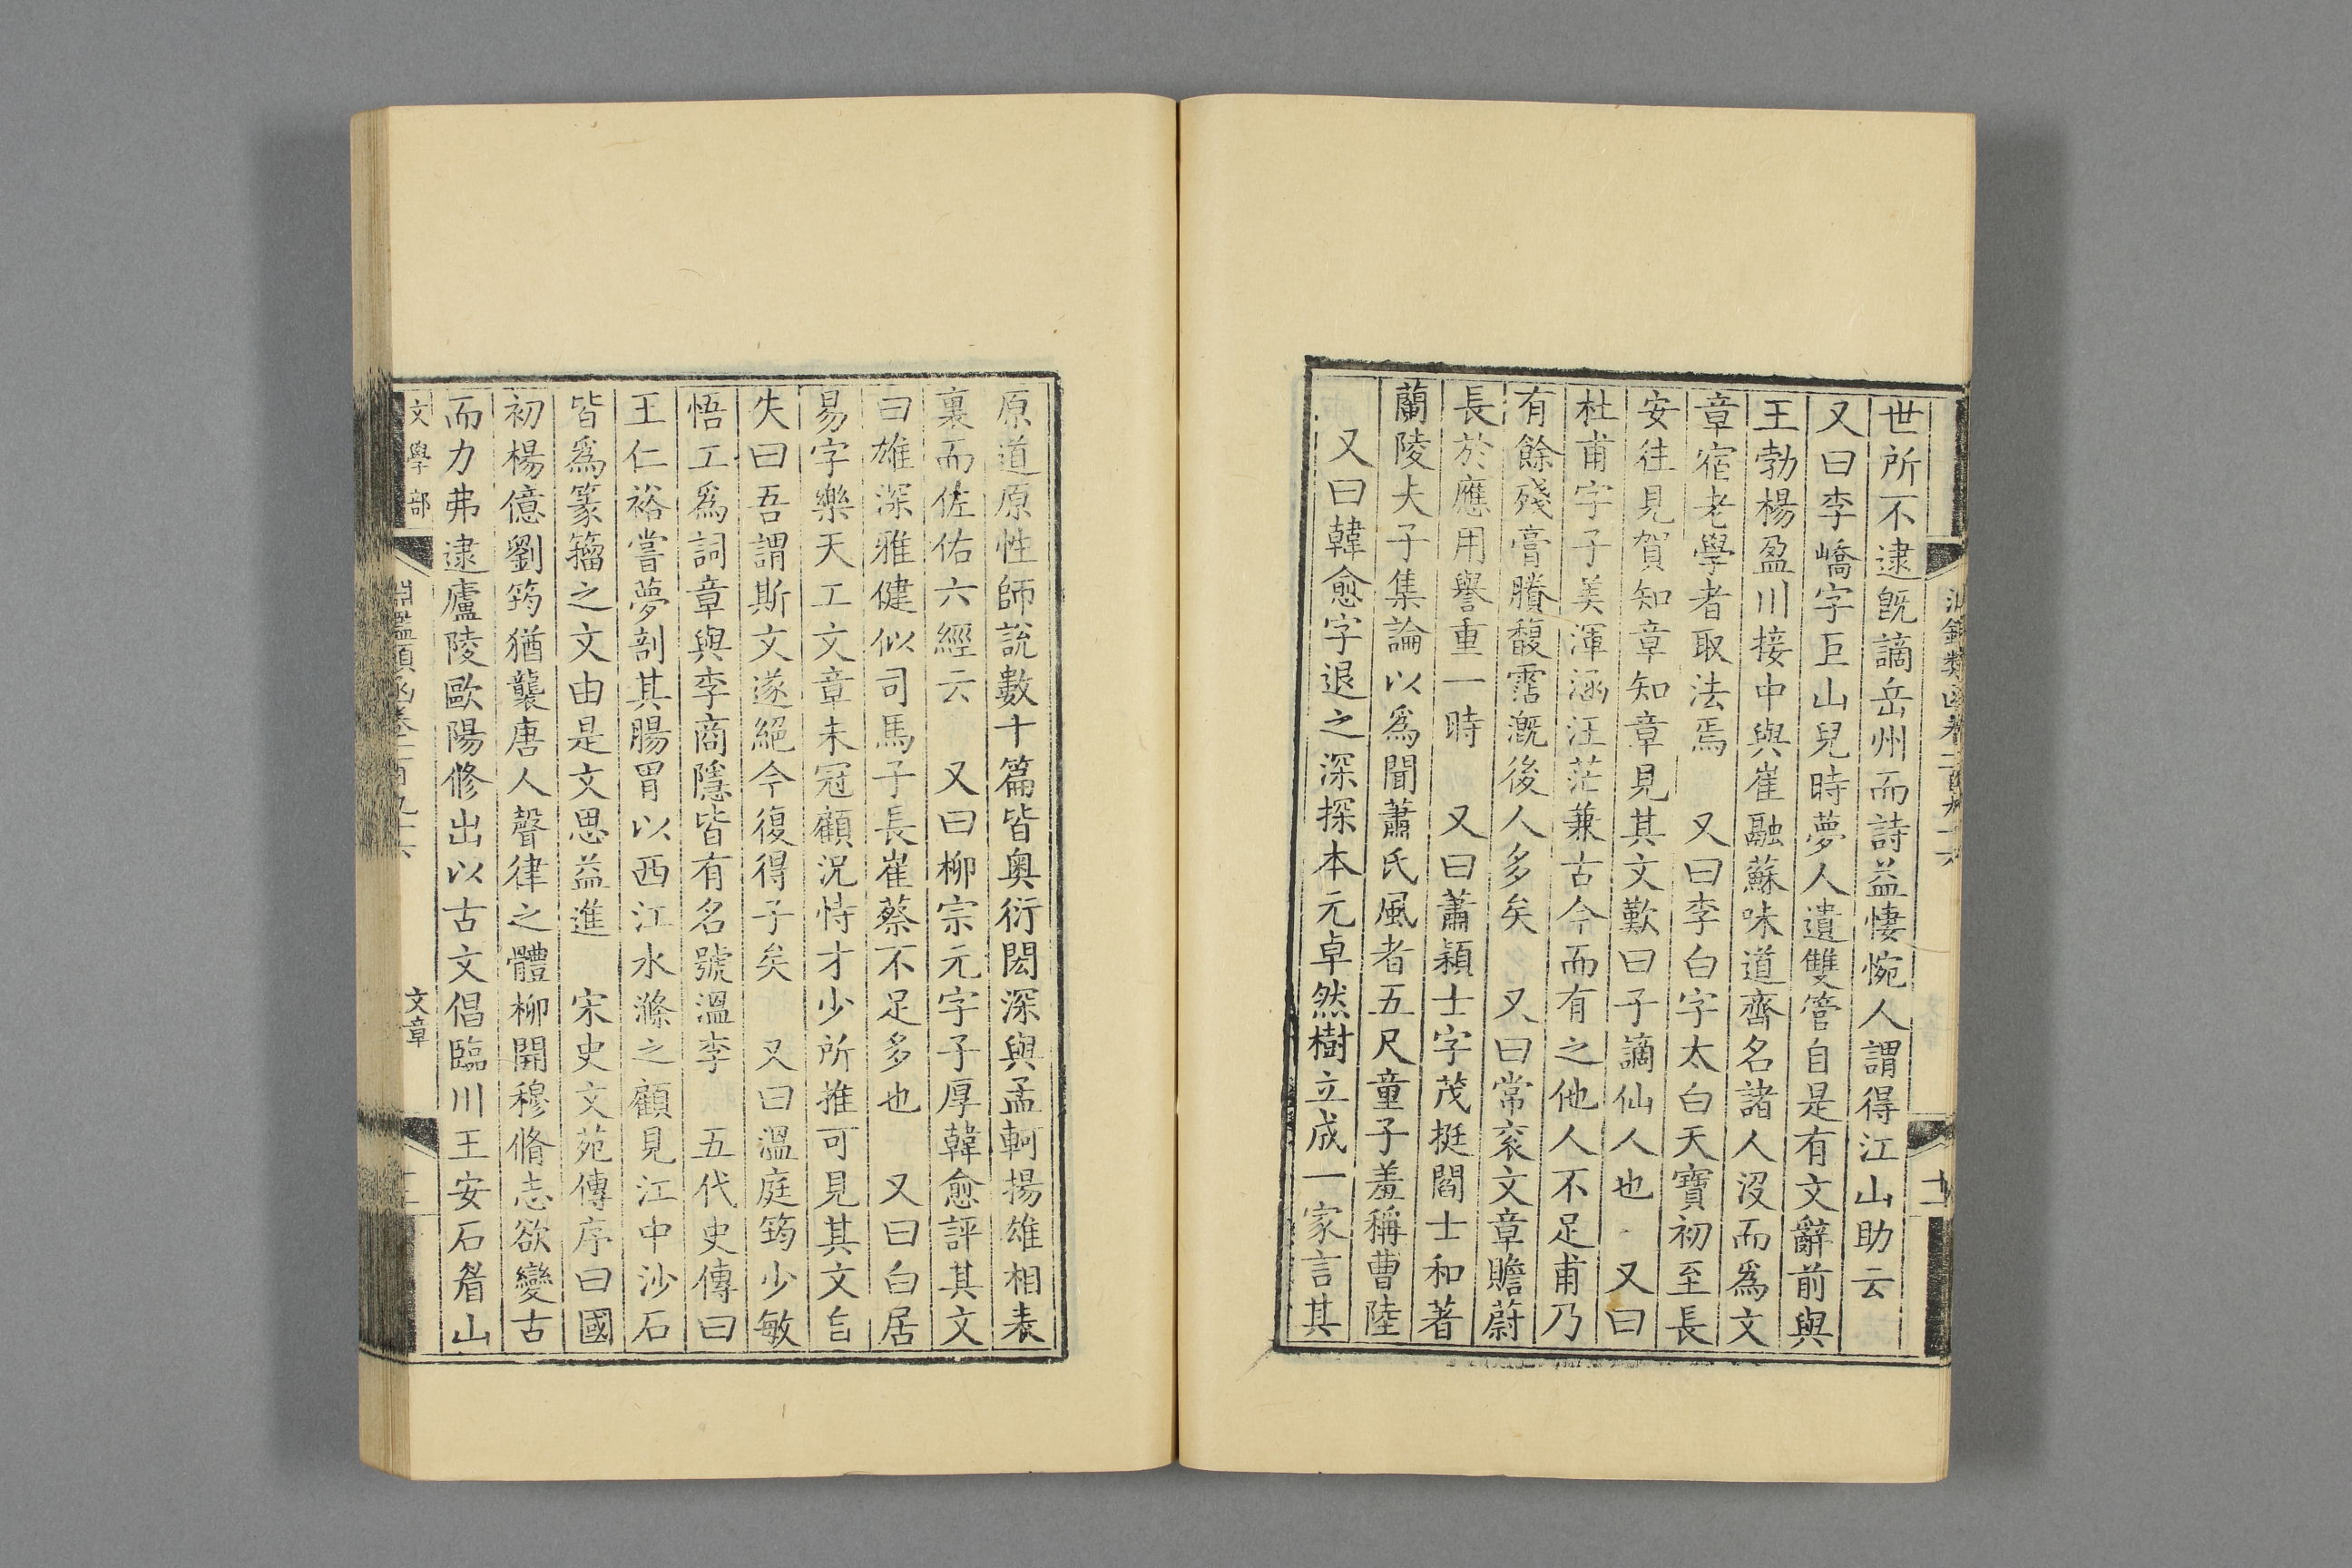 世所不逮既謫岳州而詩益悽惋人謂得江山助云
又曰李嶠字巨山兒時夢人遺雙管自是有文辭前與
王勃楊盈川接中與崔融蘇味道齊名諸人沒而為文
章宿老學者取法焉 又曰李白字太白天寶初至長
安往見賀知章知章見其文歎曰子謫仙人也 又曰
杜甫字子美渾涵汪茫兼古今而有之他人不足甫乃
有餘殘膏賸馥霑漑後人多矣 又曰常衮文章贍蔚
長於應用譽重一時 又曰蕭穎士字茂挺閻士和著
蘭陵夫子集論以為聞蕭氏風者五尺童子羞稱曹陸
又曰韓愈字退之深探本元卓然樹立成一家言其
原道原性師説數十篇皆奥衍閎深與孟軻揚雄相表
裏而佐佑六經云 又曰柳宗元字子厚韓愈評其文
曰雄深雅健似司馬子長崔蔡不足多也 又曰白居
易字樂天工文章未冠顧況恃才少所推可見其文自
失曰吾謂斯文遂絕今復得子矣 又曰溫庭筠少敏
悟工為詞章與李商隱皆有名號溫李 五代史傳曰
王仁裕嘗夢剖其腸胃以西江水滌之顧見江中沙石
皆為篆籀之文由是文思益進 宋史文苑傳序曰國
初楊億劉筠猶襲唐人聲律之體柳開穆脩志欲變古
而力弗逮廬陵歐陽修出以古文倡臨川王安石眉山
文學部 淵鑑類函卷一百九十六 文章